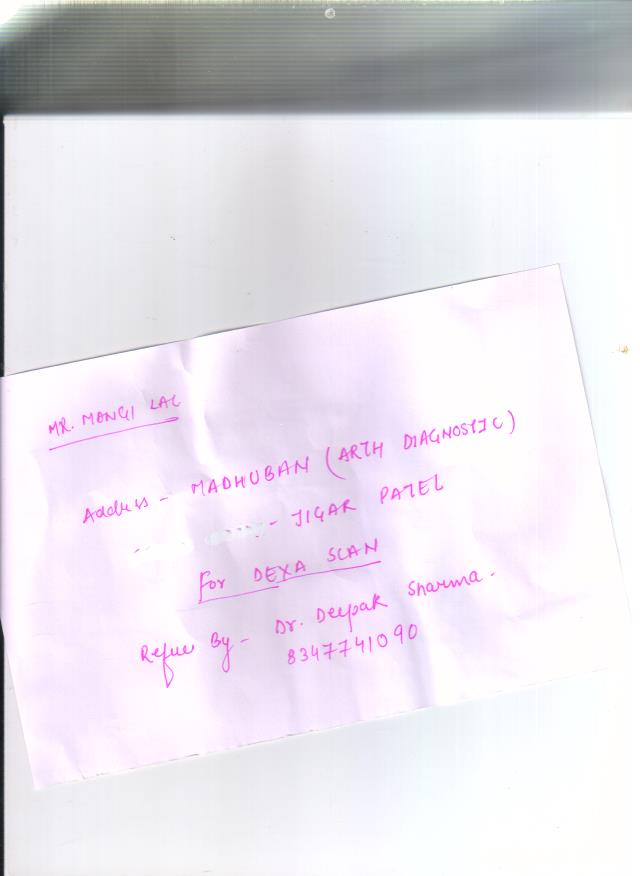 MR. MANGI LAL
Address - MADHUBAN (ARTH DIAGNOSTIC)
- JIGAR PATEL
For DEXA SCAN
Refer By - Dr. Deepak Sharma.
8347741090